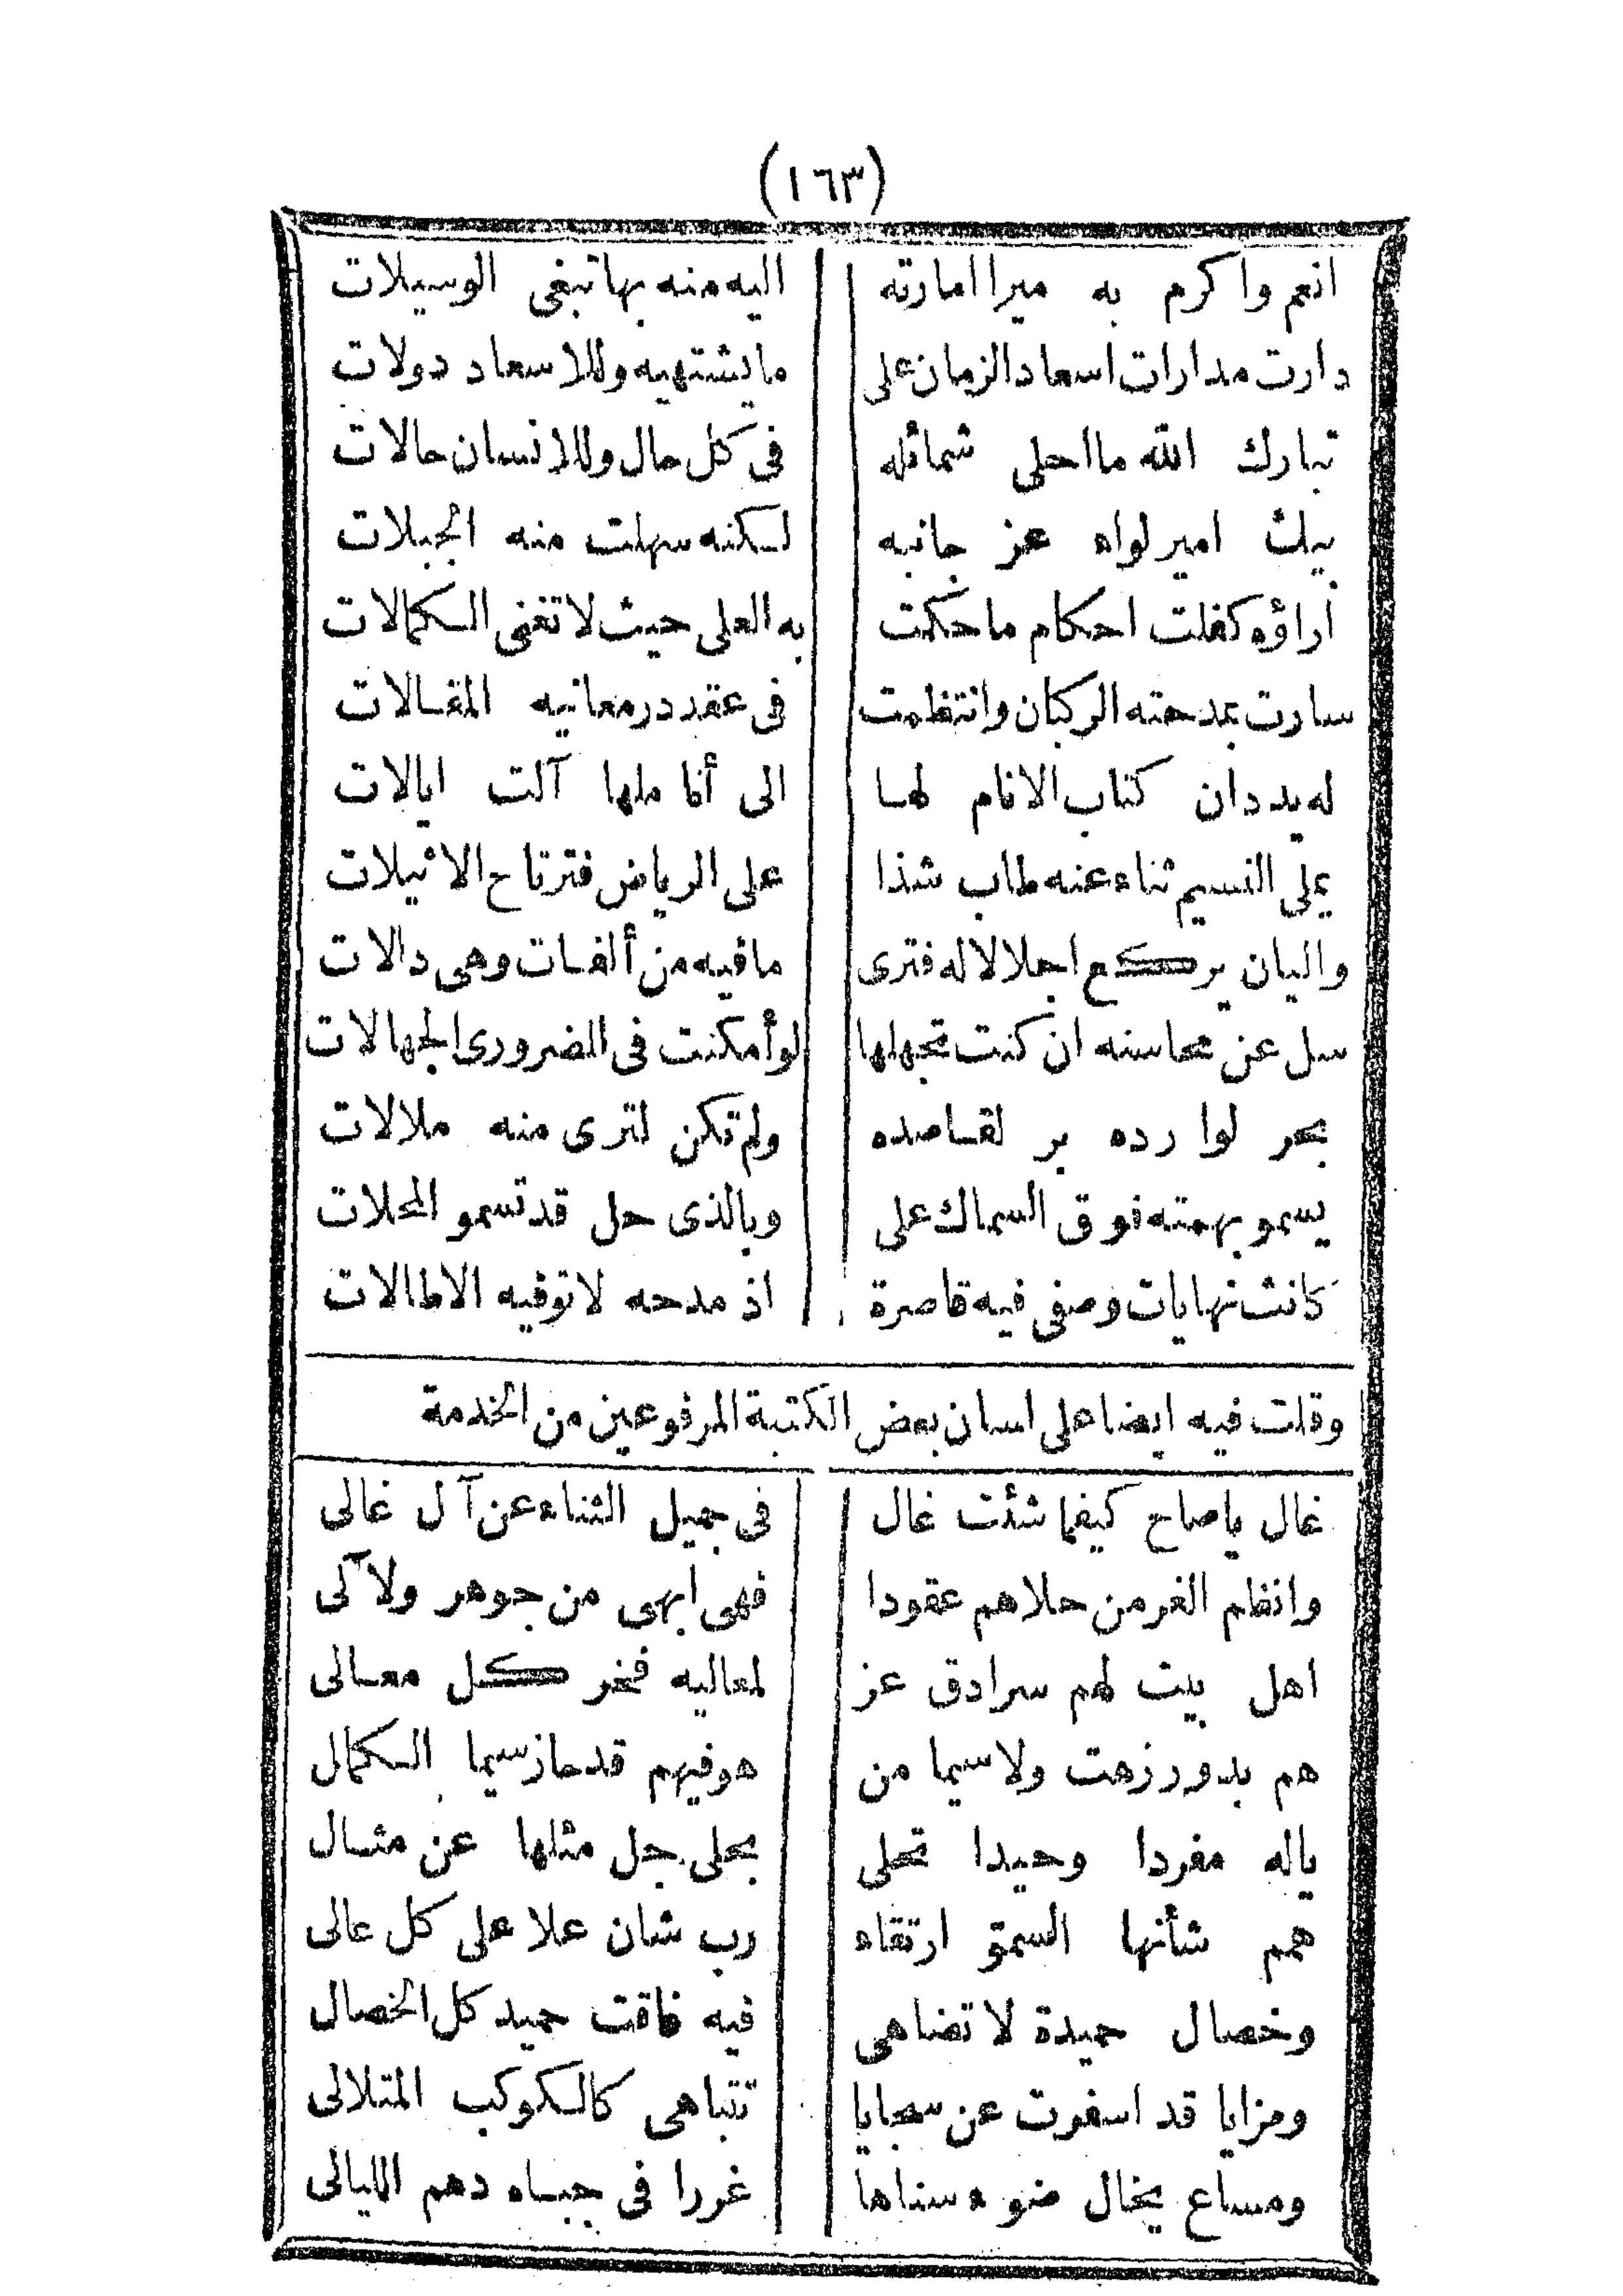 (١٦٣)
انعم واكرم به ميرا امارته اليه منه بها تبغى الوسيلات
دارت مدارات اسعاد الزمان على ما يشتهيه وللاسعاد دولات
تبارك الله ما احلى شمائله فى كل حال وللانسان حالات
بيك امير لواه عز جانبه لكنه سهلت منه الجبلات
اراؤه كفلت احكام ما حكمت به العلى حيث لا تغنى الكمالات
سارت بمدحته الركبان وانتظمت فى عقد در معانيه المقالات
له يد دان كتاب الانام لها الى أناملها آلت ايالات
يملى النسيم ثناء عنه طاب شذا على الرياض فترتاح الاثيلات
والبان يركع اجلالا له فترى ما فيه من ألفات وهى دالات
سل عن محاسنه ان كنت تجهلها لو أمكنت فى الضرورى الجهالات
بحر لوارده بر لقاصده ولم تكن لترى منه ملالات
يسمو بهمته فوق السماك على وبالذى حل قد تسمو المحلات
كانت نهايات وصفى فيه قاصرة اذ مدحه لا توفيه الاطالات
وقلت فيه ايضا على لسان بعض الكتبة المرفوعين من الخدمة
غال يا صاح كيفما شئت غال فى جميل الثناء عن آل غالى
وانظم الغر من حلاهم عقودا فهى ابهى من جوهر ولآلى
اهل بيت لهم سرادق عز لمعاليه فخر كل معالى
هم بدور زهت ولا سيما من هو فيهم قد حاز سيما الكمال
ياله مفردا وحيدا تحلى بحلى جل مثلها عن مثال
همم شأنها السمو ارتقاء رب شان علا على كل عالى
وخصال حميدة لا تضاهى فيه فاقت حميد كل الخصال
ومزايا قد اسفرت عن سجايا تتباهى كالكوكب المتلالى
ومساع يخال ضوء سناها غررا فى جباه دهم الليالى